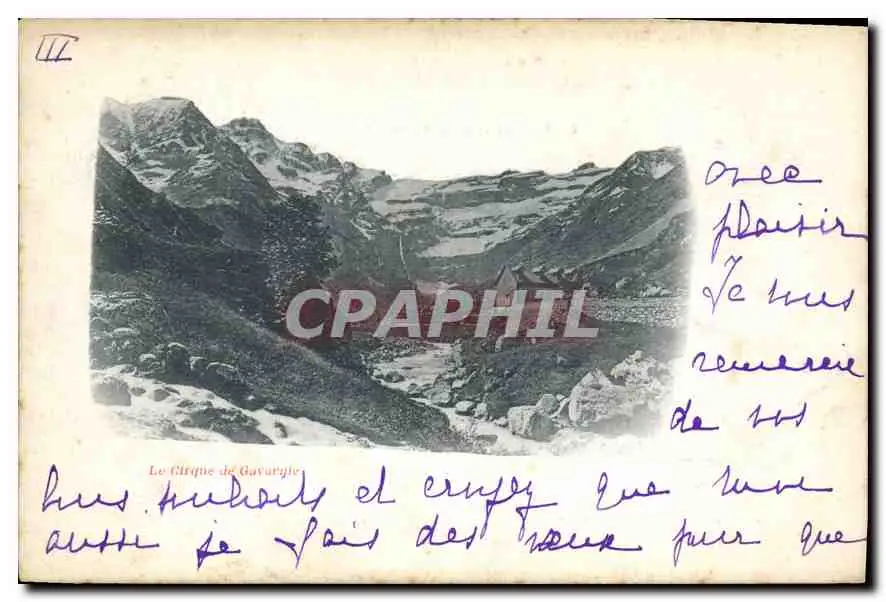 III
avec
plaisir
Je vous
remercie
de vos
bons souhaits et croyez que moi
aussi je fais des vœux pour que
Le Cirque de Gavarnie
CPAPHIL